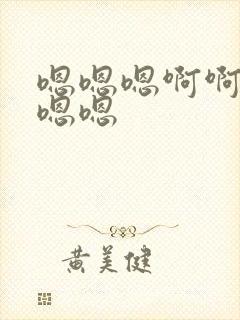 嗯嗯嗯啊啊
嗯嗯
黄美健